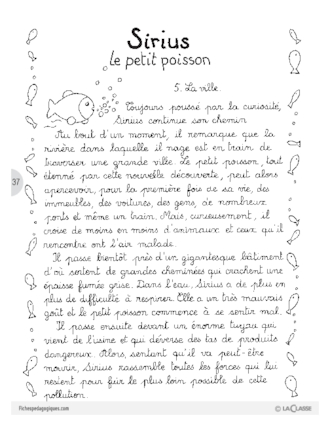 Sirius
le petit poisson
5. La ville
Toujours poussé par la curiosité,
Sirius continue son chemin.
Au bout d'un moment, il remarque que la
rivière dans laquelle il nage est en train de
traverser une grande ville. Le petit poisson, tout
étonné par cette nouvelle découverte, peut alors
apercevoir, pour la première fois de sa vie, des
immeubles, des voitures, des gens, de nombreux
ponts et même un train. Mais, curieusement, il
croise de moins en moins d'animaux et ceux qu'il
rencontre ont l'air malade.
37
Il passe bientôt près d'un gigantesque bâtiment
d'où sortent de grandes cheminées qui crachent une
épaisse fumée grise. Dans l'eau, Sirius a de plus en
plus de difficulté à respirer. Elle a un très mauvais
goût et le petit poisson commence à se sentir mal.
Il passe ensuite devant un énorme tuyau qui
vient de l'usine et qui déverse des tas de produits
dangereux. Alors, sentant qu'il va peut-être
mourir, Sirius rassemble toutes les forces qui lui
restent pour fuir le plus loin possible de cette
pollution.
Fichespedagogiques.com
© LA CLASSE